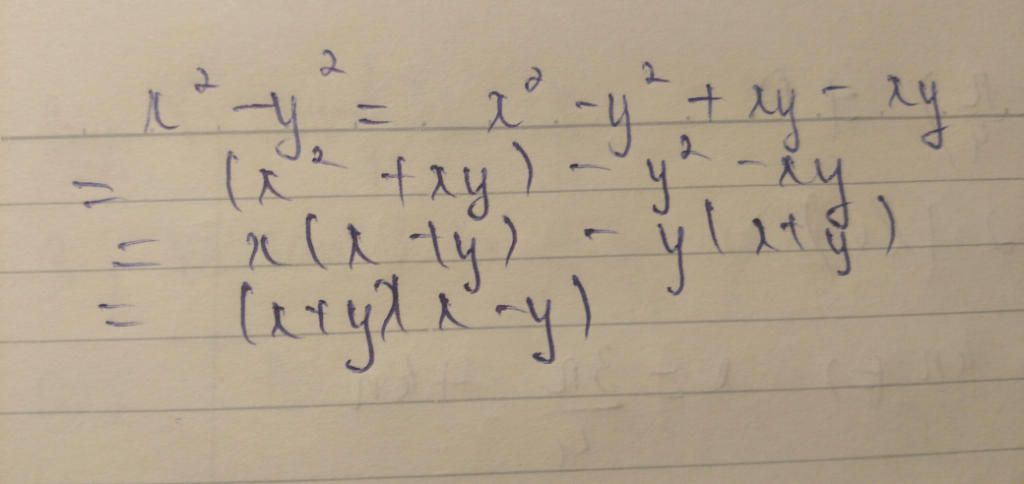 x² - y² = x² - y² + xy - xy
= (x² + xy) - y² - xy
= x(x + y) - y(x + y)
= (x + y)(x - y)